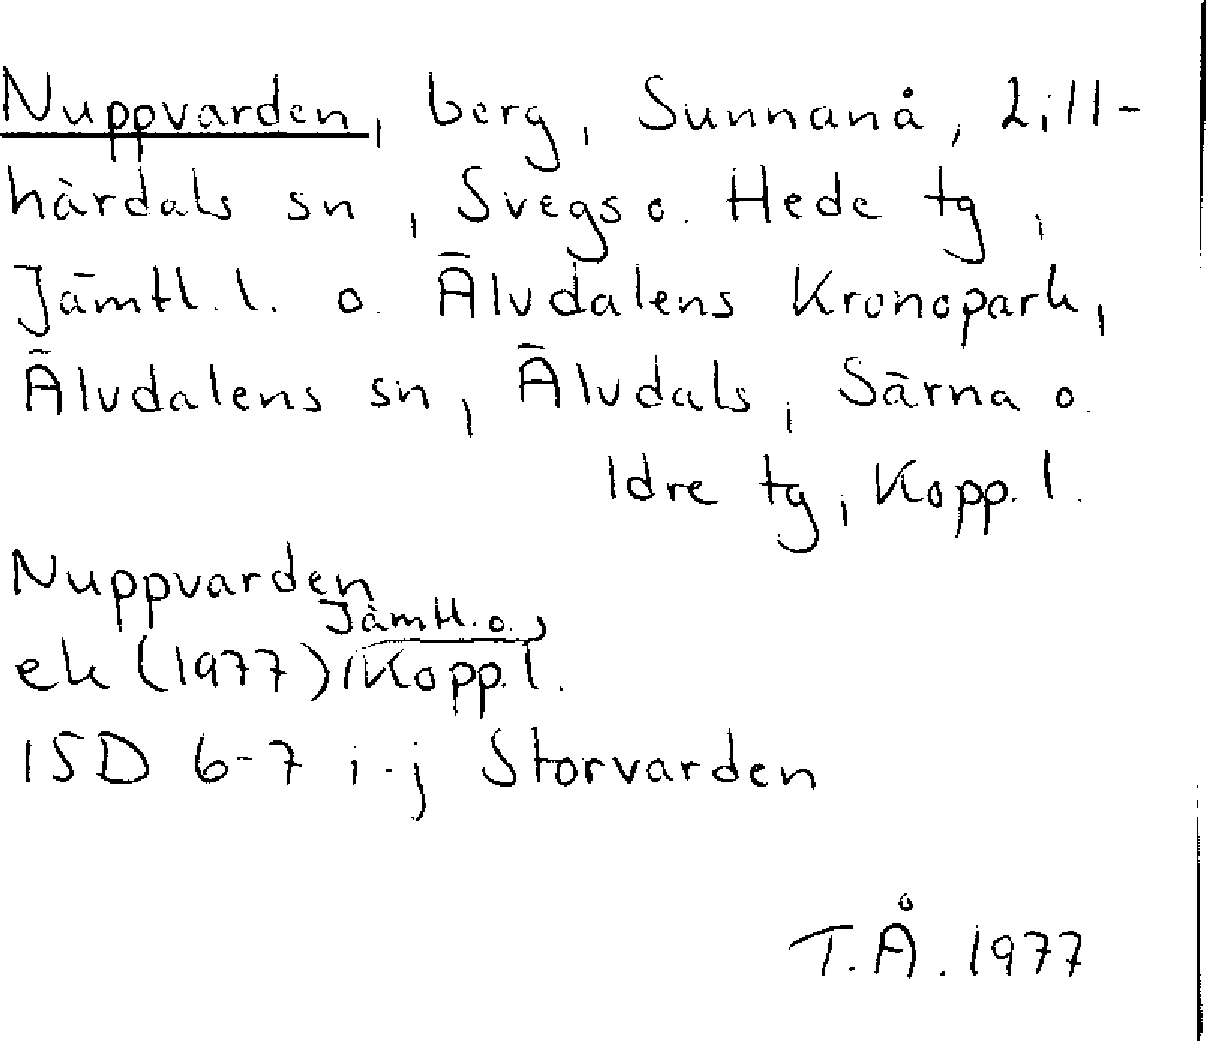 Nuppvarden, berg, Sunnanå, Lill-
härdals sn, Svegs o. Hede tg,
Jämtl. l. o. Älvdalens Kronopark,
Älvdalens sn, Älvdals, Särna o.
Idre tg, Kopp. l.
Nuppvarden
Jämtl. o.
ek (1977), Kopp. l.
15D 6-7 i-j Storvarden
T.Å. 1977